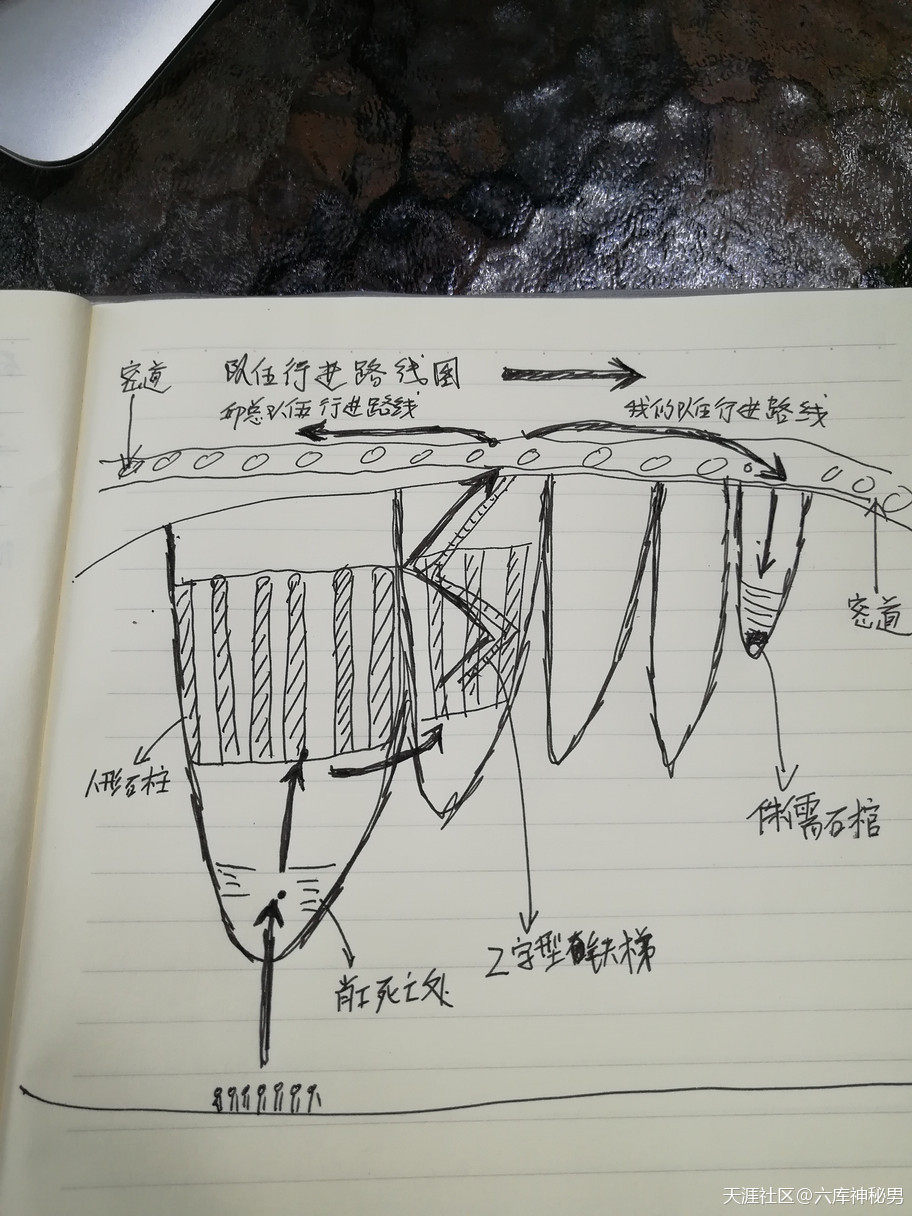 密道
队伍行进路线图
邱总队伍行进路线
我的队伍行进路线
密道
人形石柱
侏儒石棺
Z字型 铁梯
肖工死亡处
天涯社区@六库神秘男